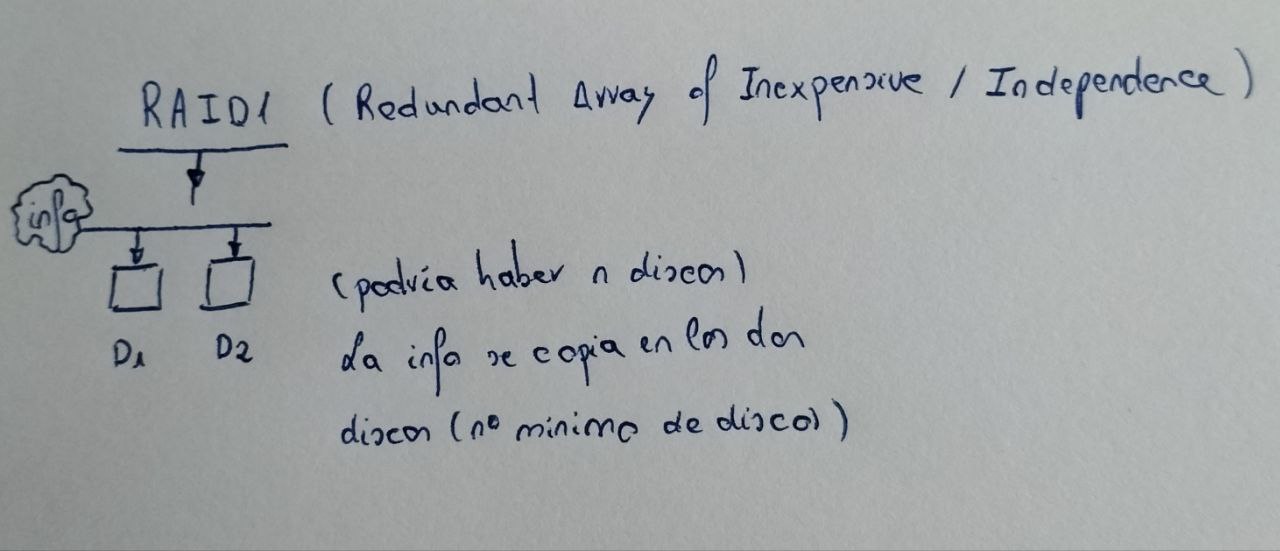 RAID1 (Redundant Array of Inexpensive / Independence)
info
D1 D2
(podría haber n discos)
La info se copia en los dos
discos (nº minimo de discos)